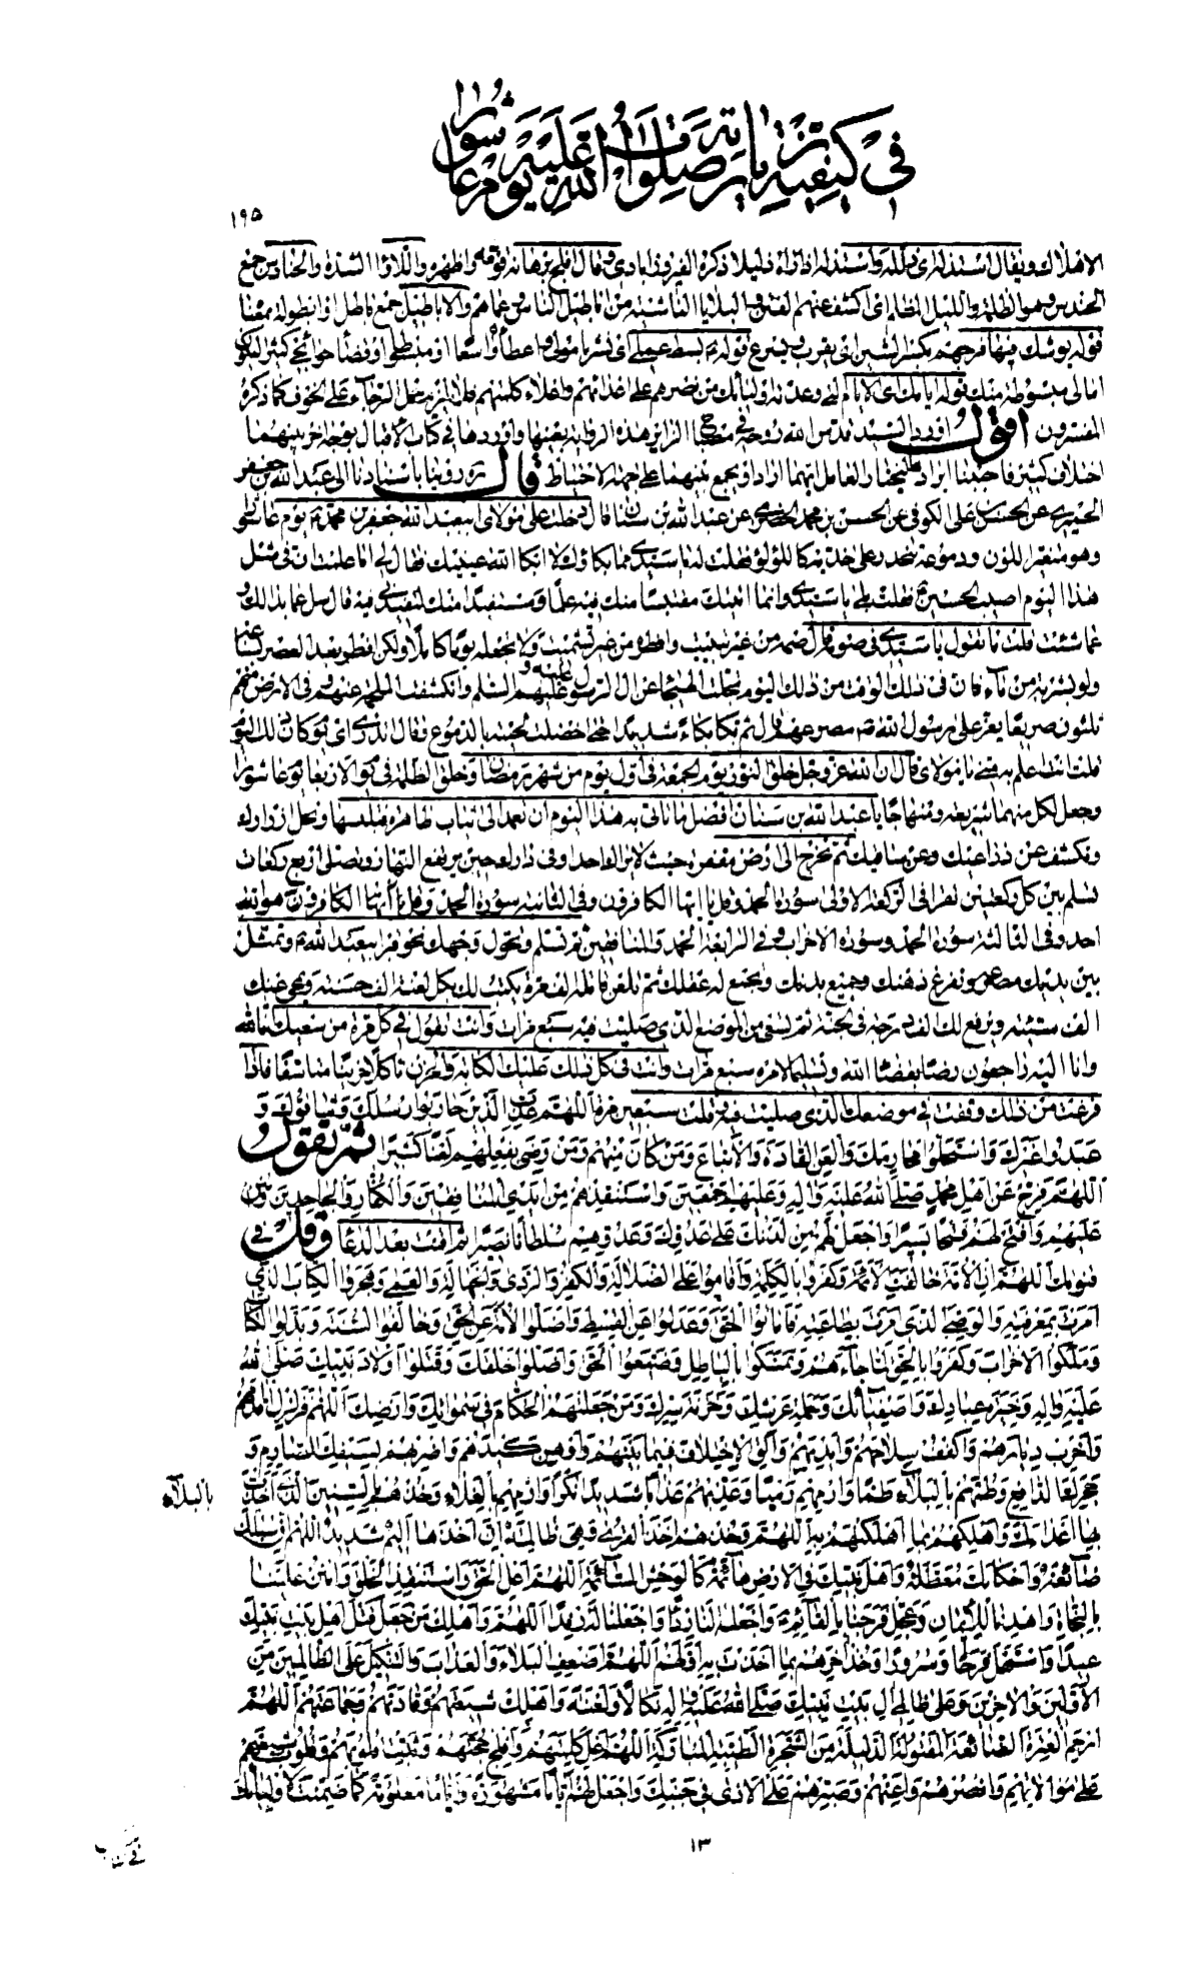 في كيفية زيارته صلوات الله عليه يوم عاشورا
١٩٥
الاهلاك ويقال استذله اى ذلله واستذله اذا راه ذليلا ذكره الفيروزابادى وقال فلج برهانه قومه واظهره واللاوا الشدة والحنادس جمع
الحندس وهو الظلمة والليل المظلم اى كشف عنهم الفتن والبلايا الناشئة من اباطيل الناس وغماهم والاباطيل جمع باطل او ابطولة بمعنا
قوله يوشك فيها فرجهم بكسر الشين اى يقرب ويسرع قوله بسط عملى اى نشر ما مولى واعطاؤا واسعا او منبسطا او قضا حوائجى كثيرا لتكون
امالى مبسوطة منك قوله يا بك من الايام التى وعدته اوليائك من نصرهم على اعدائهم واعلاء كلمتهم كما ذكره
المفسرون اقول اورد السيد قدس الله روحه في مصباح الزاير هذه الرواية بعينها واوردها في كتاب الاقبال بوجه اخر بينهما
اختلاف كثير فاحببنا ايراده هيهنا والعامل بايهما اراد او يجمع بينهما على جهة الاحتياط قال ره روينا باسنادنا الى عبد الله بن جعفر
الحميرى عن الحسن بن على الكوفى عن الحسن بن محمد الحضرمى عن عبد الله بن سنان قال دخلت على مولاى ابيعبد الله جعفر بن محمد ع يوم عاشورا
وهو متغير اللون ودموعه تنحدر على خديه كاللؤلؤ فقلت له يا سيدى مما بكاؤك لا ابكا الله عينيك فقال لى اما علمت ان في مثل
هذا اليوم اصيب الحسين ع فقلت بلى يا سيدى وانما اتيتك مقتبسا منك فيه علما ومستفيدا منك لتفيدنى فيه قال سل عما بدا لك و
عما شئت قلت ما تقول يا سيدى فى صومه قال صمه من غير تبييت وافطره من غير تشميت ولا تجعله يوما كاملا ولكن افطر بعد العصر بساعة
ولو بشربة من ماء فان فى ذلك الوقت من ذلك اليوم تجلت الهيجا عن ال الرسول عليه وعليهم السلم وانكشفت الملحمة عنهم وفى الارض منهم
ثلثون صريعا يعز على رسول الله ص مصرعهم قال ثم بكا بكاء شديدا حتى اخضلت لحيته بالدموع وقال اتدرى اى يوم كان ذلك اليوم
قلت انت اعلم به منى يا مولاى قال ان الله عز وجل خلق النور يوم الجمعة فى اول يوم من شهر رمضان وخلق الظلمة فى يوم الاربعا يوم عاشورا
وجعل لكل منهما شرعة ومنهاجا يا عبد الله بن سنان افضل ما تاتى به هذا اليوم ان تعمد الى ثياب طاهرة فتلبسها وتحل ازرارك
وتكشف عن ذراعيك وعن ساقيك ثم تخرج الى ارض مقفرة حيث لا يراك احد او فى دارك حين يرتفع النهار وتصلى اربع ركعات
تسلم بين كل ركعتين تقرا فى الركعة الاولى سورة الحمد وقل يا ايها الكافرون وفى الثانية سورة الحمد وقل هو الله
احد وفى الثالثة سورة الحمد وسورة الاحزاب وفى الرابعة الحمد والمنافقين ثم تسلم وتحول وجهك نحو قبر ابيعبد الله ع وتمثل
بين يديك مصرعه وتفرغ ذهنك وجميع بدنك وتجمع له عقلك ثم تلعن قاتله الف مرة يكتب لك بكل لعنة الف حسنة ويمحى عنك
الف سيئة ويرفع لك الف درجة فى الجنة ثم تسعى من الموضع الذى صليت فيه سبع مرات وانت تقول فى كل مرة من سعيك انا لله
وانا اليه راجعون رضا بقضاء الله وتسليما لامره سبع مرات وانت فى كل ذلك عليك الكابة والحزن ثاكلا حزينا متاسفا فاذا
فرغت من ذلك وقفت فى موضعك الذى صليت فيه وقلت سبعين مرة اللهم عذب الذين حاربوا رسلك وشاقوك و
عبدوا غيرك واستحلوا محارمك والعن القادة والاتباع ومن كان منهم ومن رضى بفعلهم لعنا كثيرا ثم تقول و
اللهم فرج عن اهل محمد صلى الله عليه واله وعليهم اجمعين واستنقذهم من ايدى المنافقين والكفار والجاحدين وامنن
عليهم وافتح لهم فتحا يسيرا واجعل لهم من لدنك على عدوك وعدوهم سلطانا نصيرا ثم اقنت بعد الدعا وقل فى
قنوتك اللهم ان الامة خالفت الائمة وكفروا بالكلمة واقاموا على الضلالة والكفر والردى والجهالة والعمى وهجروا الكتاب الذى
امرت بمعرفته والوصى الذى امرت بطاعته فاماتوا الحق وعدلوا عن القسط واضلوا الامة عن الحق وخالفوا السنة وبدلوا الكتاب
وملكوا الاحزاب وكفروا بالحق لما جاءهم وتمسكوا بالباطل وضيعوا الحق واضلوا خلقك وقتلوا اولاد نبيك صلى الله
عليه واله وخيرة عبادك واصفيائك وحملة عرشك وخزنة سرك ومن جعلتهم الحكام فى سمواتك وارضك اللهم فزلزل اقدامهم
واخرب ديارهم واكفف سلاحهم وايديهم والق الاختلاف فيما بينهم واوهن كيدهم واضربهم بسيفك الصارم و
حجرك الدامغ وطمهم بالبلاء طما وارمهم رميا وعذبهم عذابا شديدا نكرا وارمهم بالغلاء وخذهم بالسنين الذى اخذت
بالبلاء
بها اعداءك واهلكهم بما اهلكتهم به اللهم وخذهم اخذ القرى وهى ظالمة ان اخذها اليم شديد اللهم ان سبلك
ضائعة واحكامك معطلة واهل نبيك فى الارض هائمة كالوحش السائمة اللهم اعل الحق واستنقذ الخلق وامنن علينا
بالنجاة واهدنا للايمان وعجل فرجنا بالقائم ع واجعله لنا ردءا واجعلنا له رفدا اللهم واهلك من جعل قتل اهل بيت نبيك
عيدا واستهل فرحا وسرورا وخذ اخرهم بما اخذت به اولهم اللهم اضعف البلاء والعذاب والتنكيل على الظالمين من
الاولين والاخرين وعلى ظالمى ال بيت نبيك صلى الله عليه واله نكالا ولعنة واهلك شيعتهم وقادتهم وجماعتهم اللهم
ارحم العترة الضائعة المقتولة الذليلة من الشجرة الطيبة المباركة اللهم اعل كلمتهم وافلج حجتهم وثبت قلوبهم وقلوب شيعتهم
على موالاتهم وانصرهم واعنهم وصبرهم على الاذى فى جنبك واجعل لهم اياما مشهورة واياما معلومة كما ضمنت لاوليائك
١٣